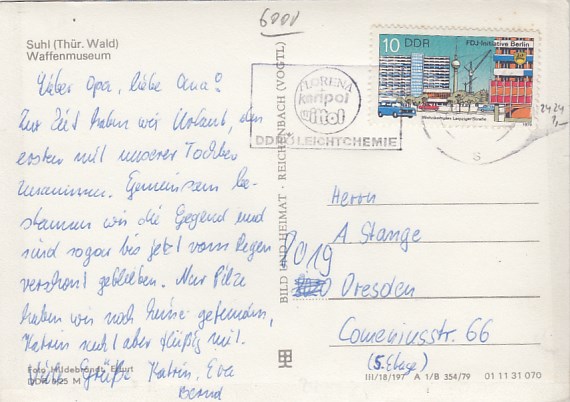 6000
Suhl (Thür. Wald)
Waffenmuseum
Lieber Opa, liebe Oma!
Zur Zeit haben wir Urlaub, den
ersten mit unserer Tochter
zusammen. Gemeinsam be-
staunen wir die Gegend und
sind sogar bis jetzt vom Regen
verschont geblieben. Nur Pilze
haben wir noch keine gefunden,
Katrin sucht aber fleißig mit.
Viele Grüße Katrin, Eva
Bernd
Foto Hildebrandt, Erfurt
DDR 0,25 M
BILD UND HEIMAT · REICHENBACH (VOGTL)
FLORENA
karipol
elitol
DDR LEICHTCHEMIE
10 DDR FDJ-Initiative Berlin
Wohnkomplex Leipziger Straße
1979
2424
1,-
s
Herrn
A. Stange
8019
Dresden
Comeniusstr. 66
(5. Etage)
III/18/197 A 1/B 354/79 01 11 31 070